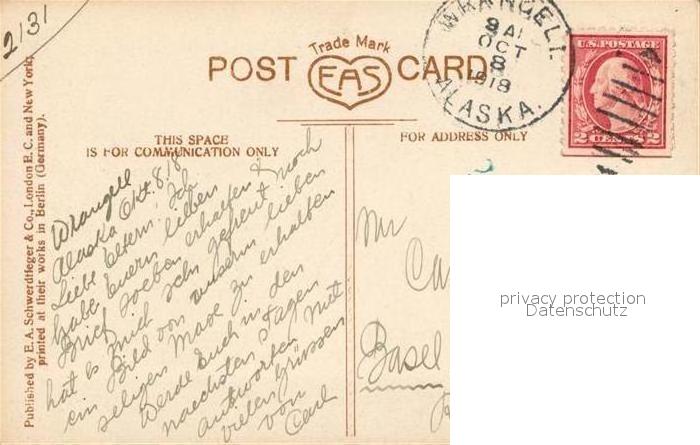 2131
Trade Mark
POST EAS CARD
WRANGELL
9 A
OCT
8
1918
ALASKA.
U.S. POSTAGE
2 CENTS 2
THIS SPACE
IS FOR COMMUNICATION ONLY
FOR ADDRESS ONLY
Published by E. A. Schwerdtfeger & Co., London E. C. and New York,
printed at their works in Berlin (Germany).
Wrangell
Alaska Okt. 8, 18
Liebe Eltern! Ich
habe Euern lieben
Brief soeben erhalten &
hat es mich sehr gefreut noch
ein Bild von unserm lieben
seligen Maxe zu erhalten
Werde Euch in den
naechsten Tagen
antworten Mit
vielen Grüssen
von
Carl
Mr
Ca
Basel
privacy protection
Datenschutz